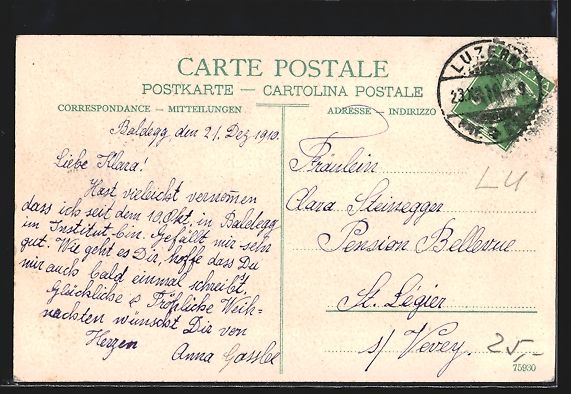 CARTE POSTALE
POSTKARTE — CARTOLINA POSTALE
CORRESPONDANCE — MITTEILUNGEN
ADRESSE — INDIRIZZO
Baldegg, den 21. Dez. 1910.
Liebe Klara!
Hast vieleicht vernom̄en
dass ich seit dem 10. Okt. in Baldegg
im Institut bin. Gefällt mir sehr
gut. Wie geht es Dir, hoffe dass Du
mir auch bald einmal schreibt.
Glückliche & Fröhliche Weih-
nachten wünscht Dir von
Herzen
Anna
Fräulein
Clara Steinegger
Pension Bellevue
St. Légier
s/ Vevey.
LUZERN
LU
25,-
75930